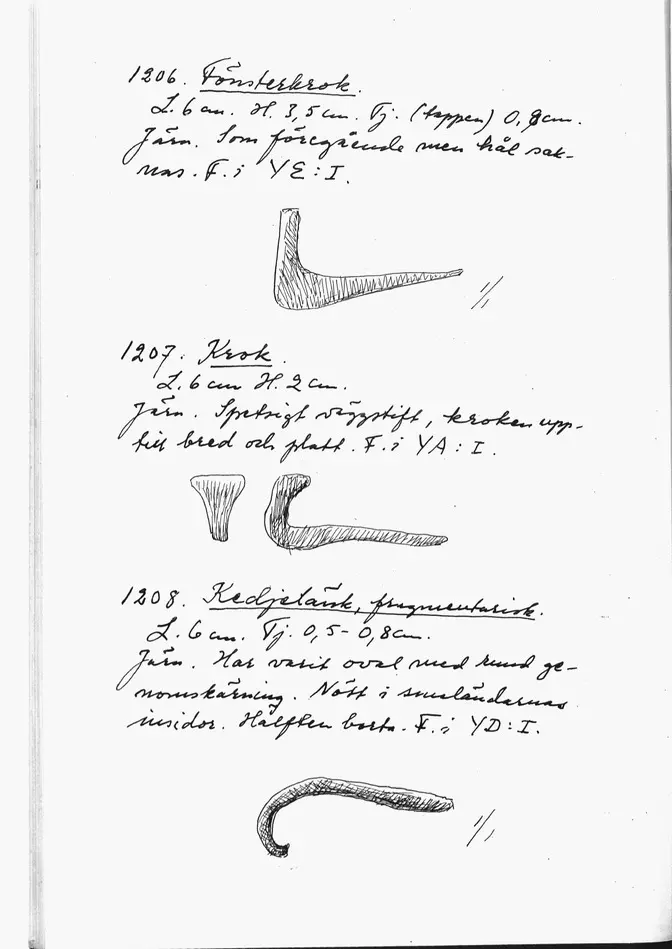 1206. Fönsterkrok.
L. 6 cm. H. 3,5 cm. Tj. (tappen) 0,9 cm.
Järn. Som föregående men hål sak-
nas. F. i YE : I.
1/1
1207. Krok.
L. 6 cm H. 2 cm.
Järn. Spetsigt väggstift, kroken upp-
till bred och platt. F. i YA : I.
1208. Kedjelänk, fragmentarisk.
L. 6 cm. Tj. 0,5 - 0,8 cm.
Järn. Har varit oval med rund ge-
nomskärning. Nött i smaländarnas
insidor. Hälften borta. F. i YD : I.
1/1